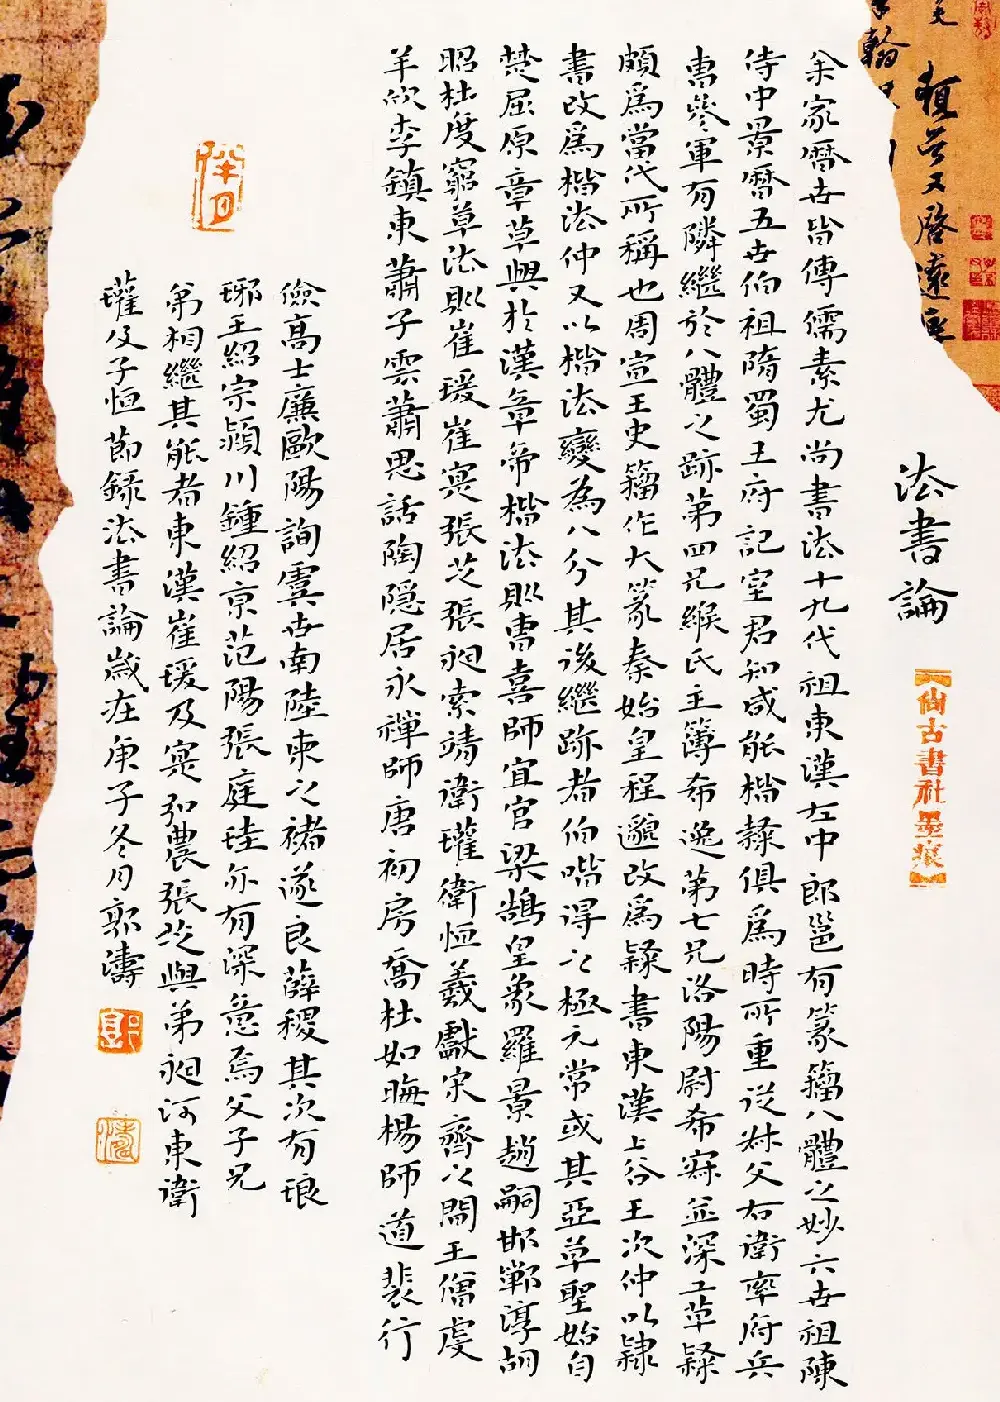 法書論
尚古書社墨痕
余家曆世皆傳儒素尤尚書法十九代祖東漢左中郎邕有篆籀八體之妙六世祖陳
侍中景曆五世伯祖隋蜀王府記室君知咸能楷隸俱為時所重從叔父右衛率府兵
曹參軍有隣繼於八體之跡第四兄緱氏主簿希逸第七兄洛陽尉希寂並深工草隸
頗為當代所稱也周宣王史籀作大篆秦始皇程邈改為隸書東漢上谷王次仲以隸
書改為楷法仲又以楷法變為八分其後繼跡者伯喈得之極元常或其亞草聖始自
楚屈原章草興於漢章帝楷法則曹喜師宜官梁鵠皇象羅景趙嗣邯鄲淳胡
昭杜度窮草法則崔瑗崔寔張芝張昶索靖衛瓘衛恒羲獻宋齊之間王僧虔
羊欣李鎮東蕭子雲蕭思話陶隱居永禪師唐初房喬杜如晦楊師道裴行
儉高士廉歐陽詢虞世南陸柬之褚遂良薛稷其次有琅
琊王紹宗潁川鍾紹京范陽張庭珪亦有深意焉父子兄
弟相繼其能者東漢崔瑗及寔弘農張芝與弟昶河東衛
瓘及子恒節錄法書論歲在庚子冬月郭濤